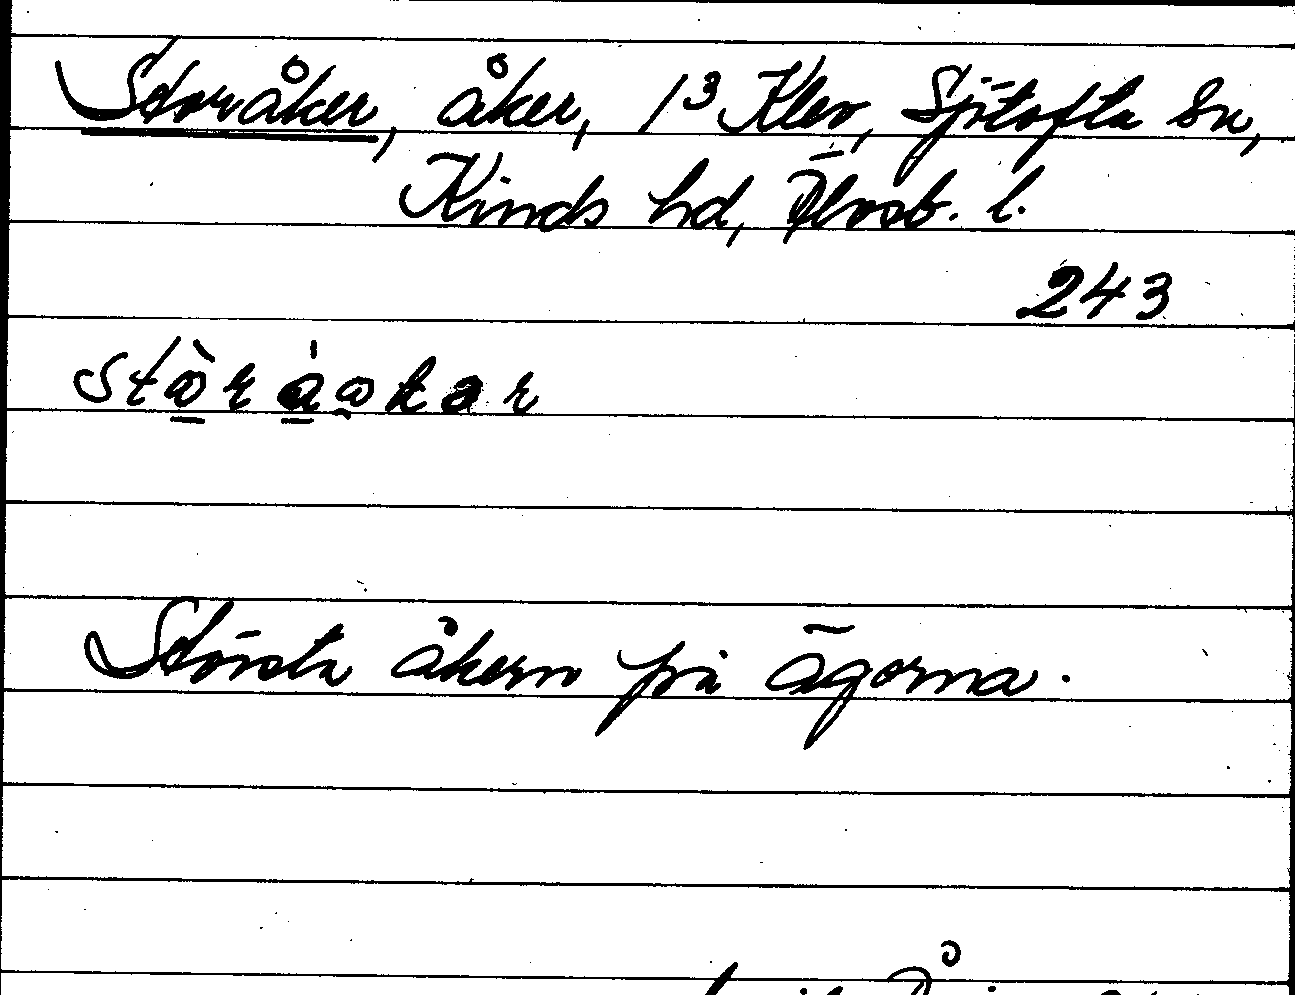 Storåker, åker, 1³ Klev, Sjötofta sn,
Kinds hd, Älvsb. l.
243
Största åkern på ägorna.